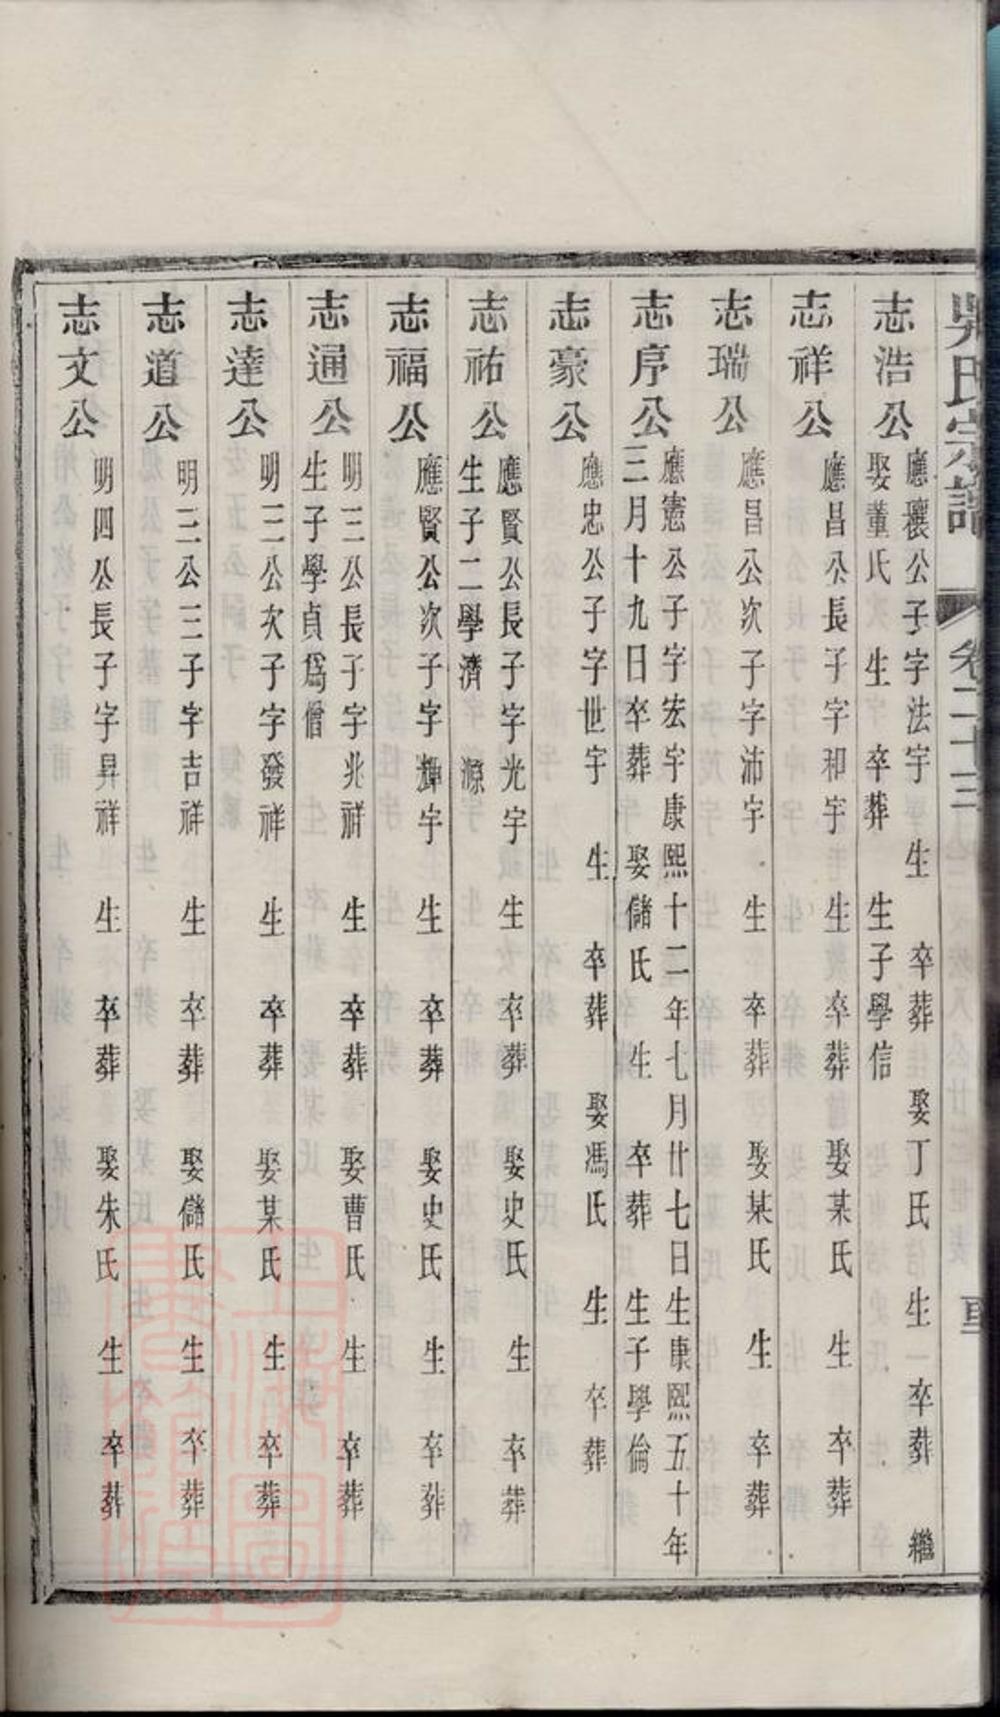 吳氏宗譜 卷二十三
志浩公 應禳公子字法宇 生 卒葬 娶丁氏 生 卒葬 繼
娶董氏 生 卒葬 生子學信
志祥公 應昌公長子字和宇 生 卒葬 娶某氏 生 卒葬
志瑞公 應昌公次子字沛宇 生 卒葬 娶某氏 生 卒葬
志序公 應憲公子字宏宇康熙十二年七月廿七日生康熙五十年
三月十九日卒葬 娶儲氏 生 卒葬 生子學倫
志豪公 應忠公子字世宇 生 卒葬 娶馮氏 生 卒葬
志祐公 應賢公長子字光宇 生 卒葬 娶史氏 生 卒葬
生子二學濟 源
志福公 應賢公次子字輝宇 生 卒葬 娶史氏 生 卒葬
志通公 明三公長子字兆祥 生 卒葬 娶曹氏 生 卒葬
生子學貞爲僧
志達公 明三公次子字發祥 生 卒葬 娶某氏 生 卒葬
志道公 明三公三子字吉祥 生 卒葬 娶儲氏 生 卒葬
志文公 明四公長子字昇祥 生 卒葬 娶朱氏 生 卒葬